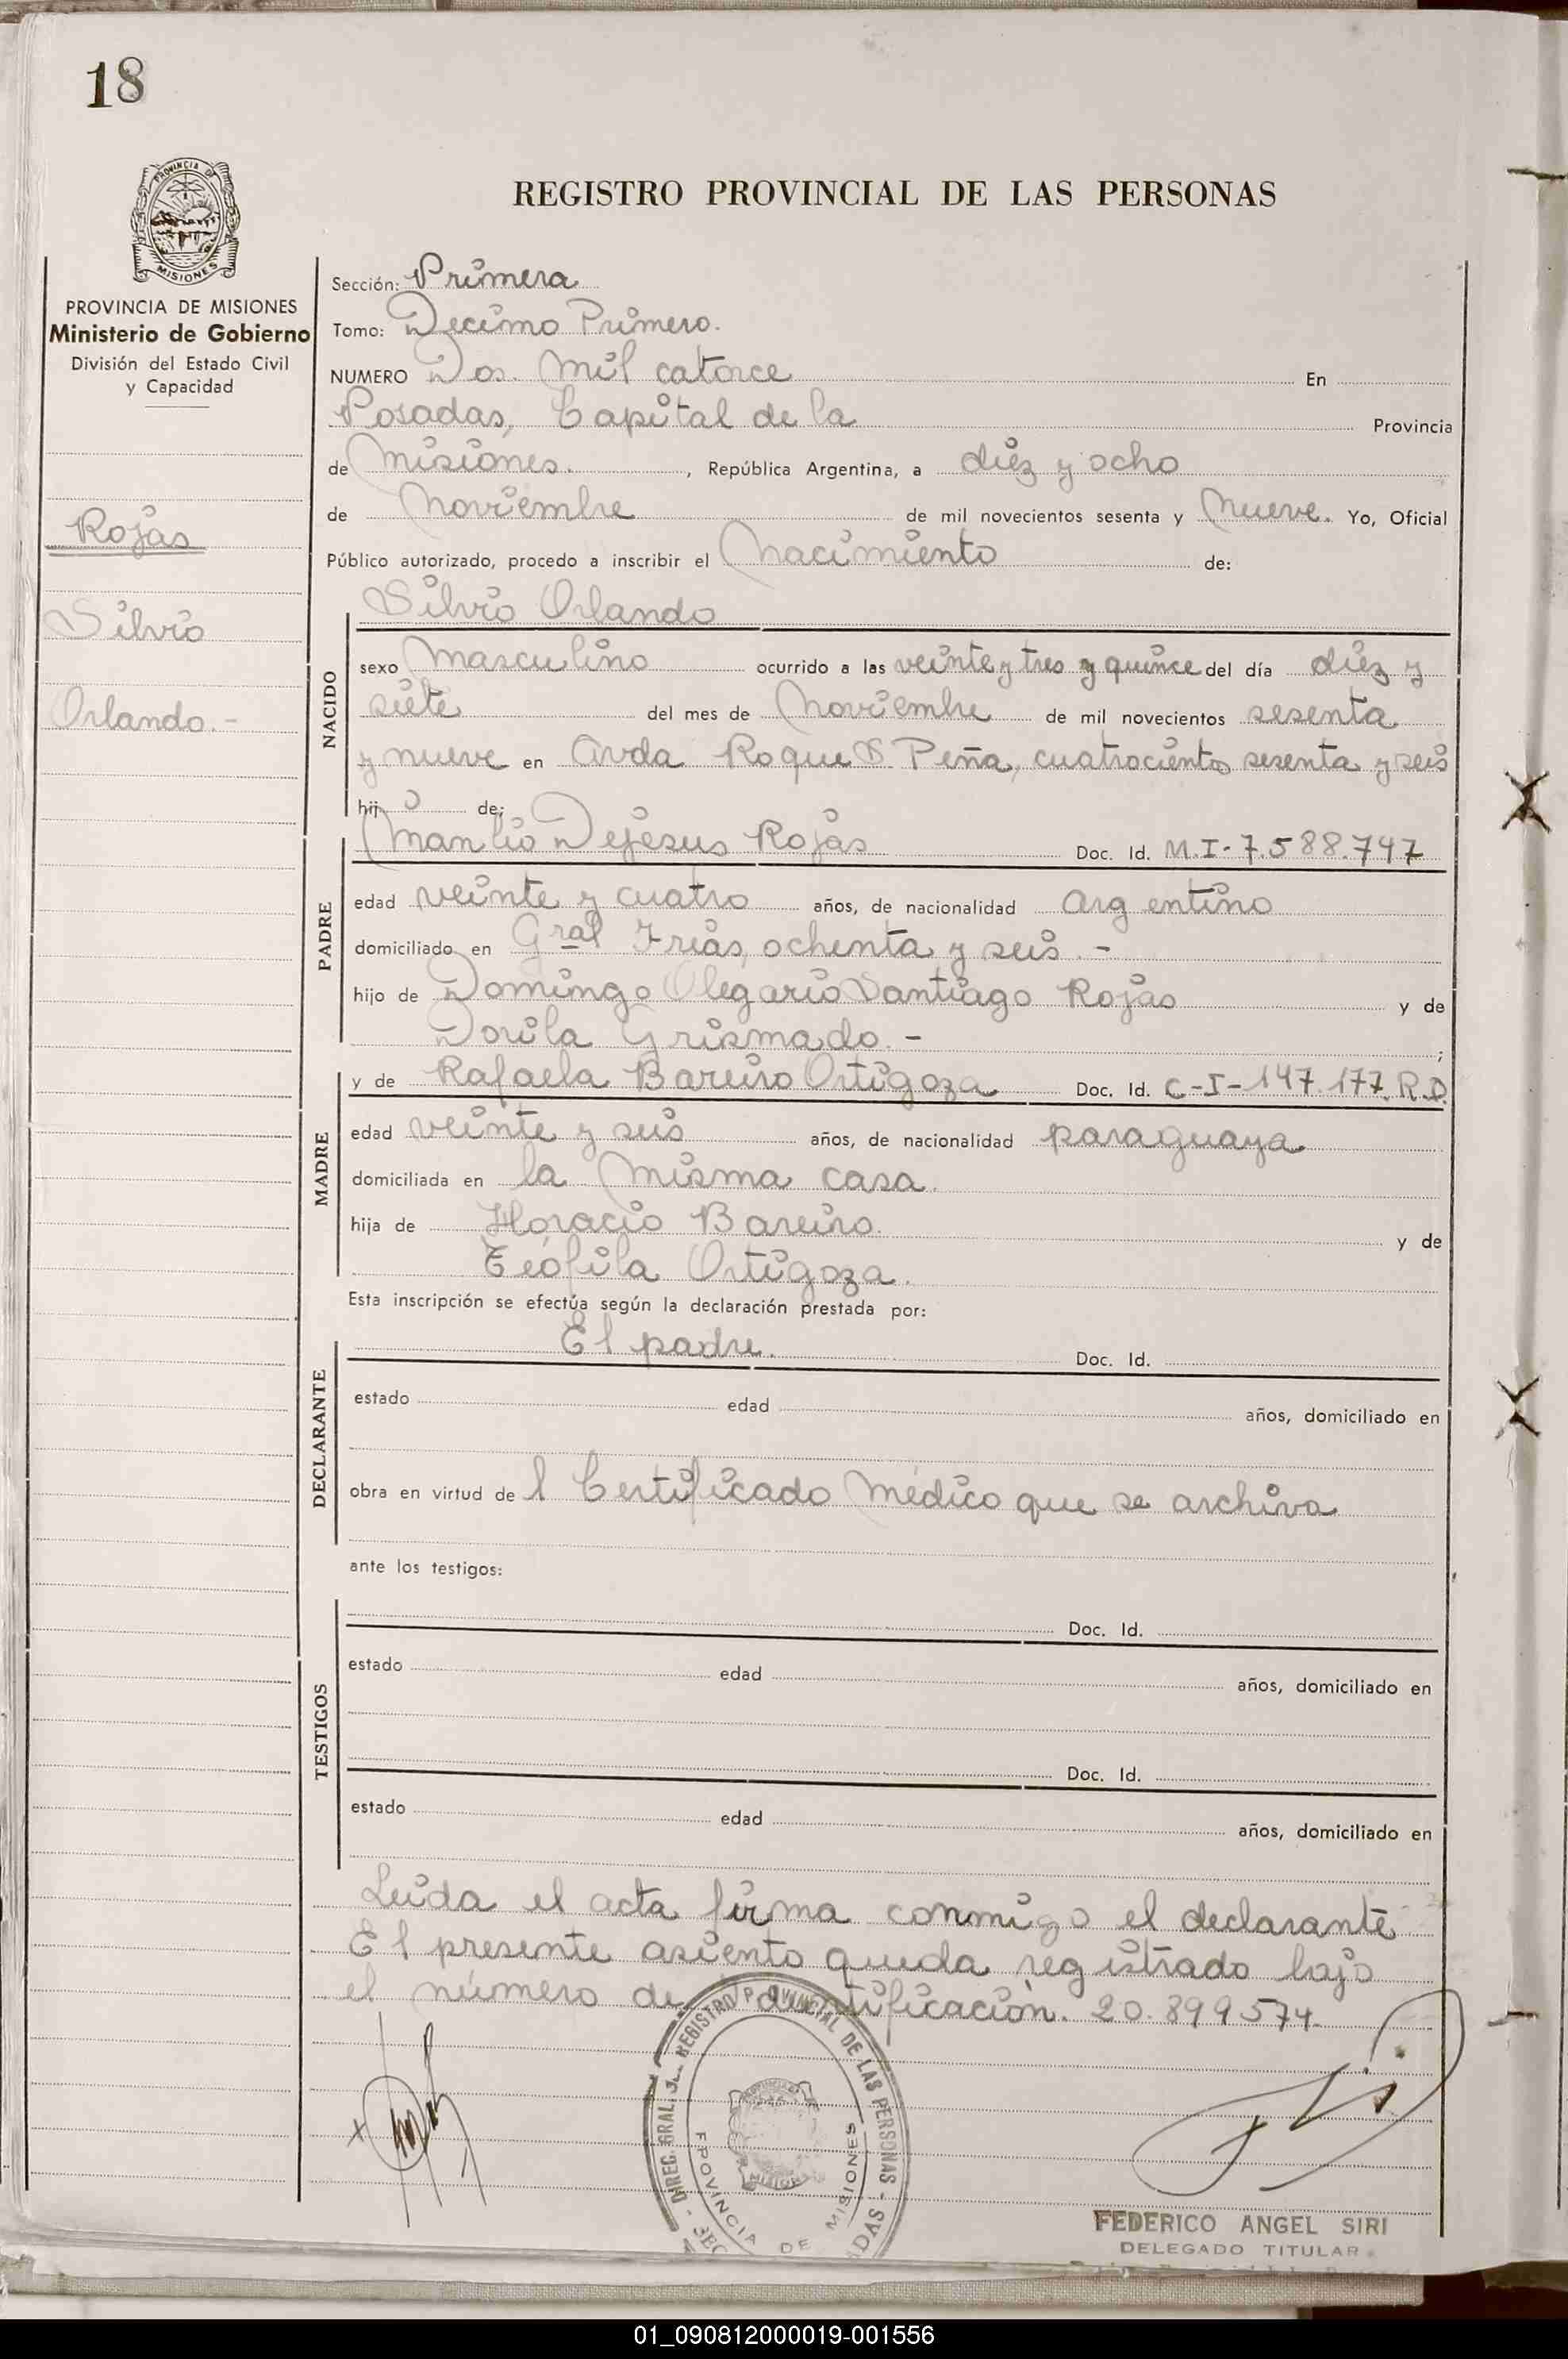 18
PROVINCIA DE
MISIONES
PROVINCIA DE MISIONES
Ministerio de Gobierno
División del Estado Civil
y Capacidad
Rojas
Silvio
Orlando.-
REGISTRO PROVINCIAL DE LAS PERSONAS
Sección: Primera
Tomo: Decimo Primero.
NUMERO Dos. mil catorce En
Posadas, Capital de la Provincia
de Misiones. , República Argentina, a diez y ocho
de Noviembre de mil novecientos sesenta y Nueve. Yo, Oficial
Público autorizado, procedo a inscribir el Nacimiento de:
NACIDO
Silvio Orlando
sexo Masculino ocurrido a las veinte y tres y quince del día diez y
siete del mes de Noviembre de mil novecientos sesenta
y nueve en Avda Roque S. Peña, cuatrocientos sesenta y seis
hij o de:
PADRE
Manlio Dejesus Rojas Doc. Id. M.I-7.588.747
edad veinte y cuatro años, de nacionalidad argentino
domiciliado en Gral Frias, ochenta y seis.-
hijo de Domingo Olegario Santiago Rojas y de
Dorila Grismado.- ;
MADRE
y de Rafaela Bareiro Ortigoza Doc. Id. C-I-147.177.R.P.
edad veinte y seis años, de nacionalidad paraguaya
domiciliada en la misma casa.
hija de Horacio Bareiro. y de
Teófila Ortigoza.
Esta inscripción se efectúa según la declaración prestada por:
DECLARANTE
El padre. Doc. Id.
estado edad años, domiciliado en
obra en virtud de l Certificado Médico que se archiva
ante los testigos:
TESTIGOS
Doc. Id.
estado edad años, domiciliado en
Doc. Id.
estado edad años, domiciliado en
Leida el acta firma conmigo el declarante
El presente asiento queda registrado bajo
el número de identificación. 20.899574.
DIREC. GRAL. REGISTRO PROVINCIAL DE LAS PERSONAS
PROVINCIA DE MISIONES
FEDERICO ANGEL SIRI
DELEGADO TITULAR
01_090812000019-001556